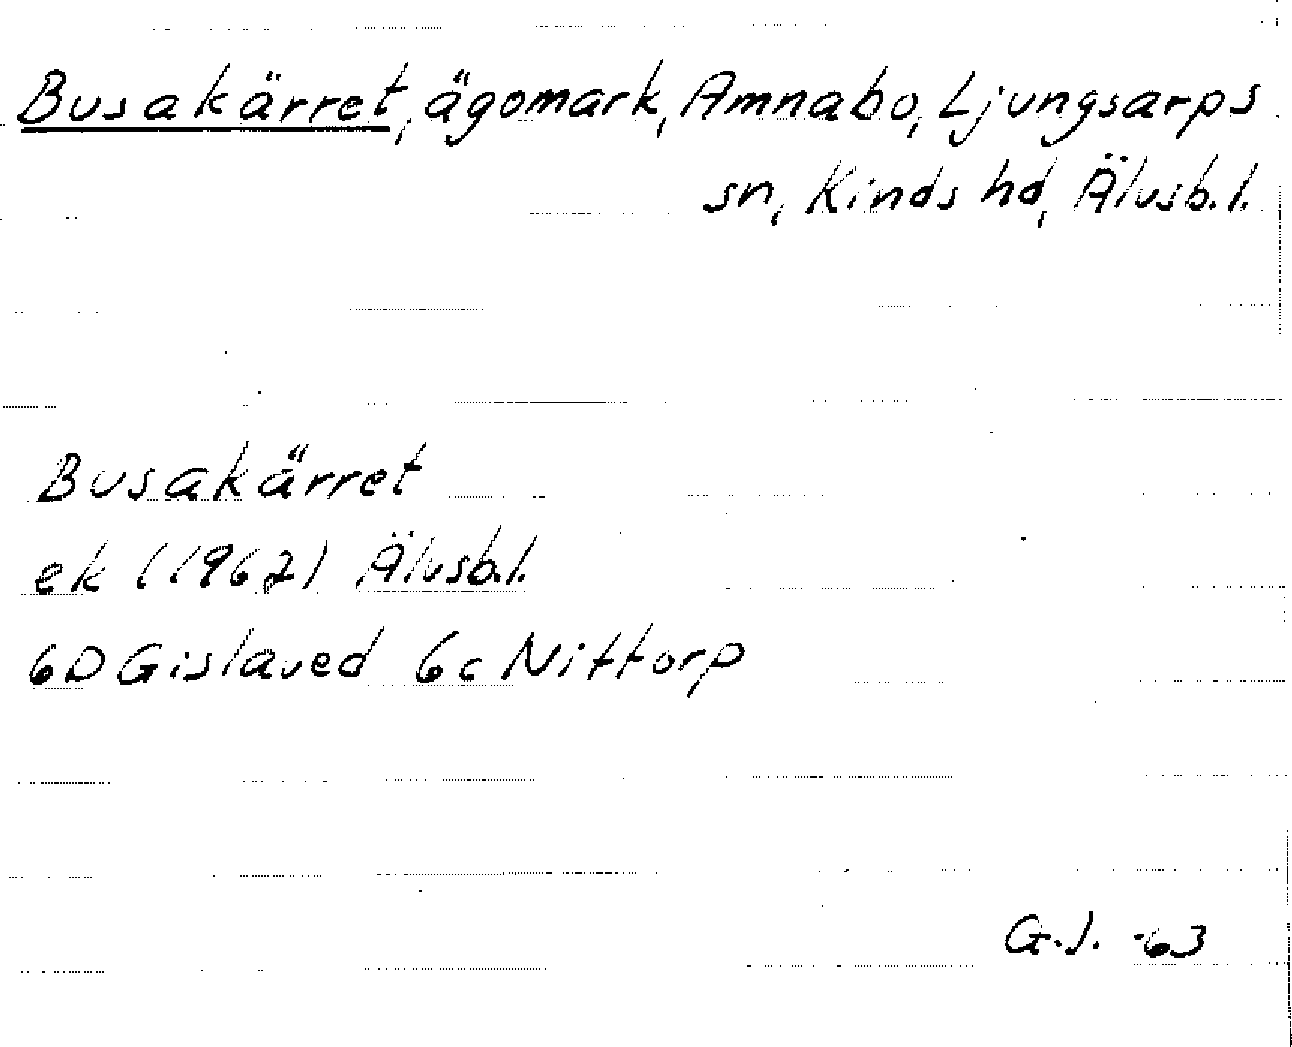 Busakärret, ägomark, Amnabo, Ljungsarps
sn, Kinds hd, Älvsb.l.
Busakärret
ek (1962) Älvsb.l.
6D Gislaved 6c Nittorp
G.J. -63